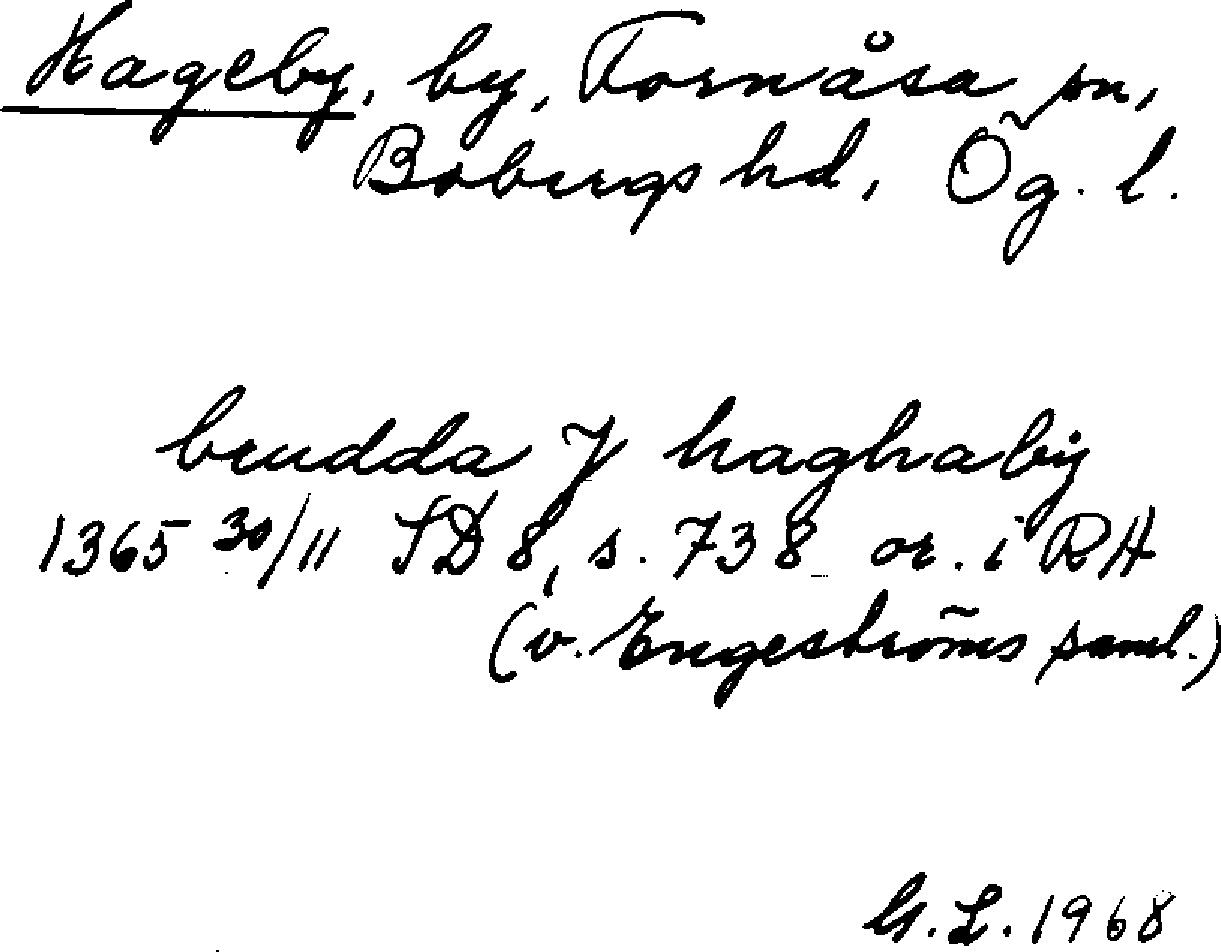 Hageby, by, Fornåsa sn,
Bobergs hd, Ög. l.
brudda J haghaby
1365 30/11 SD 8, s. 738 or. i RA
(v. Engeströms saml.)
G. L. 1968